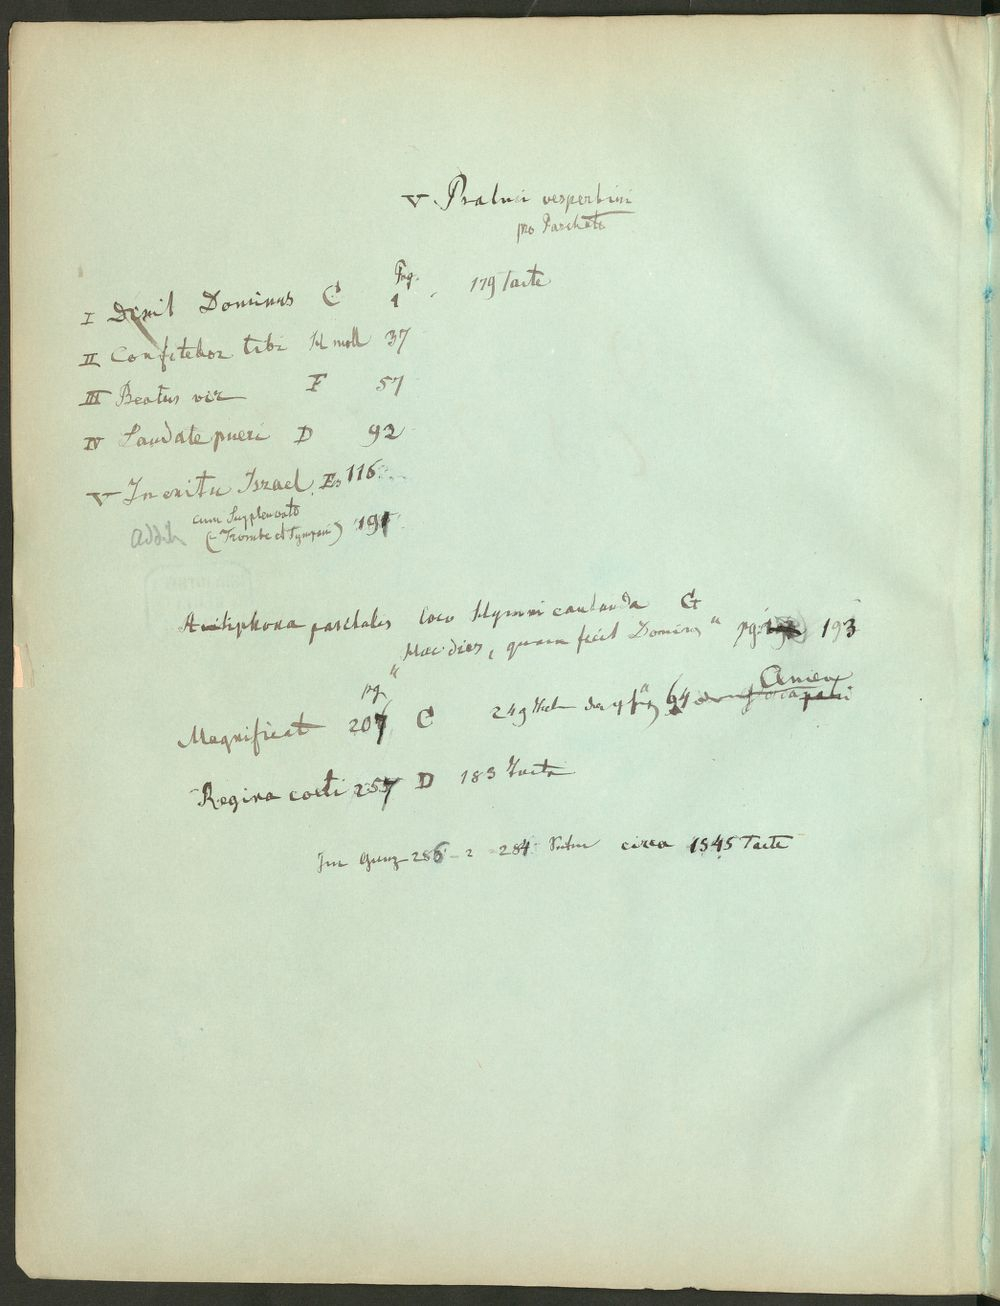 V Psalmi vespertini
pro Paschate
Pag.
I Dixit Dominus C 1 179 Takte
II Confitebor tibi moll 37
III Beatus vir F 57
IV Laudate pueri D 92
V In exitu Israel Es 116
cum Supplemento
(Trombe et Tympani) 191
Antiphona paschalis loco Hymni cantanda G
"Haec dies, quam fecit Dominus" pg. 193
pg.
Magnificat 207 C 249 64 Amen
Regina coeli 257 D 183 Takte
Im Ganz 286 - 2 = 284 Seiten circa 1545 Takte